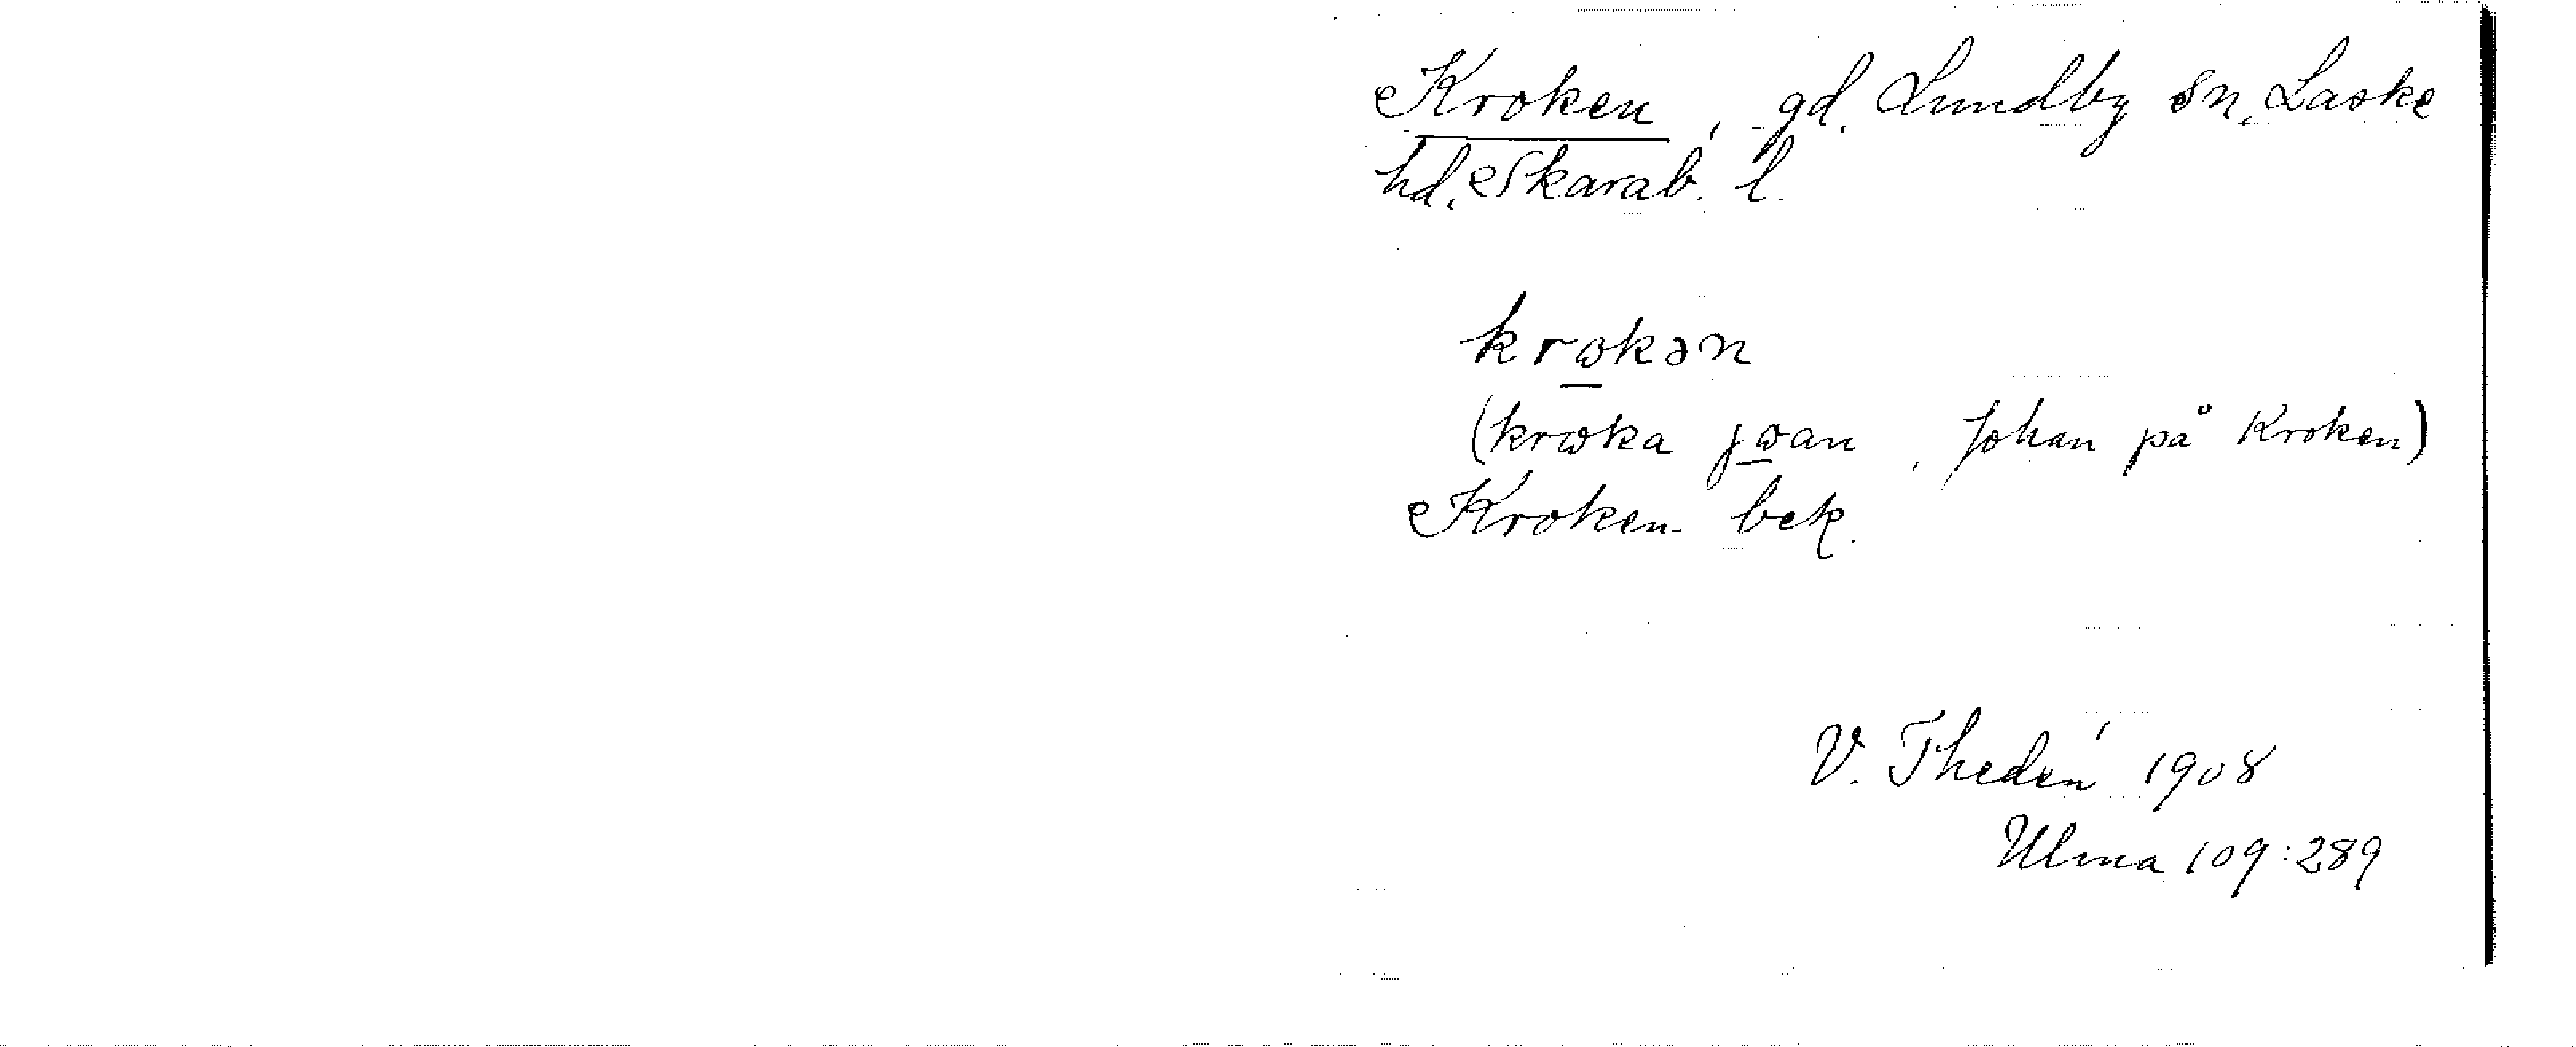 Kroken, gd. Lundby sn, Laske
hd. Skarab. l.
krωkən
(krωka jωan, Johan på Kroken)
Kroken bek.
V. Thedén 1908
Ulma 109:289